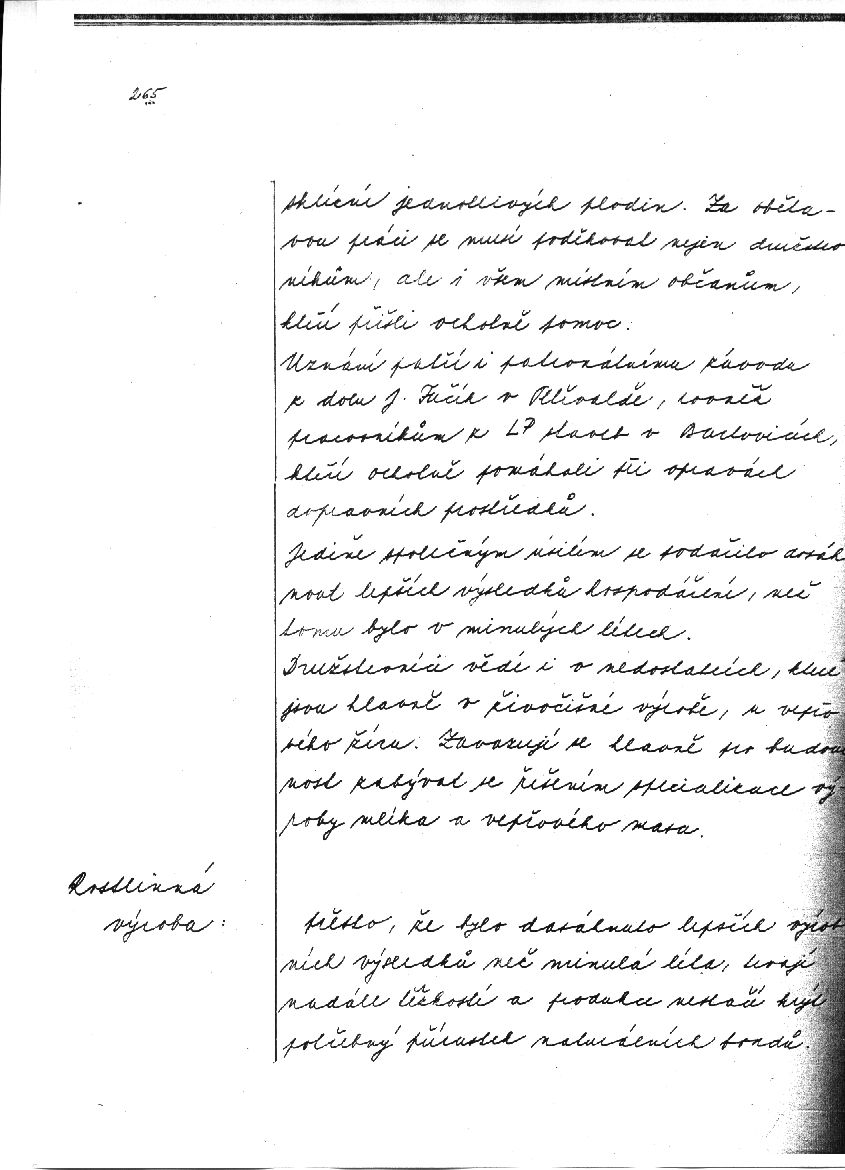 265
sklizni jednotlivých plodin. Za oběta-
vou práci se musí poděkovat nejen družstev
níkům, ale i všem místním občanům,
kteří přišli ochotně pomoc.
Uznání patří i patronátnímu závodu
z dolu J. Fučík v Petřvaldě, rovněž
pracovníkům z LP staveb v Bartovicích,
kteří ochotně pomáhali při opravách
dopravních prostředků.
Jedině společným úsilím se podařilo dosáh
nout lepších výsledků hospodaření, než
tomu bylo v minulých létech.
Družstevníci vědí i o nedostatcích, které
jsou hlavně v živočišné výrobě, u vepřo-
vého žíru. Zavazují se hlavně pro budouc
nost zabývat se řešením specializace vý-
roby mléka a vepřového masa.
Rostlinná
výroba:
Přesto, že bylo dosáhnuto lepších výrob
ních výsledků než minulá léta, trvají
nadále těžkosti a produkce nestačí krýt
potřebný přírustek naturálních fondů.